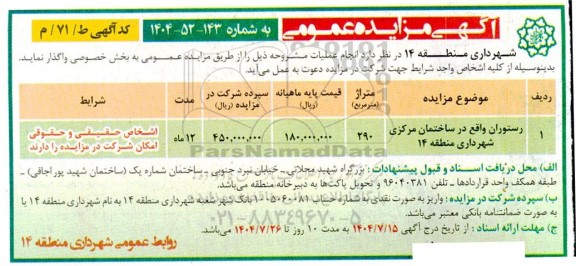 آگهی مزایده عمومی
به شماره ۱۴۳-۵۲-۱۴۰۴
کد آگهی ط/ ۷۱/ م
شهرداری منطقه ۱۴ در نظر دارد انجام عملیات مشروحه ذیل را از طریق مزایده عمومی به بخش خصوصی واگذار نماید.
بدینوسیله از کلیه اشخاص واجد شرایط جهت شرکت در مزایده دعوت به عمل می‌آید.
ردیف موضوع مزایده متراژ (مترمربع) قیمت پایه ماهیانه (ریال) سپرده شرکت در مزایده (ریال) مدت شرایط
۱ رستوران واقع در ساختمان مرکزی شهرداری منطقه ۱۴ ۲۹۰ ۱۸۰,۰۰۰,۰۰۰ ۴۵۰,۰۰۰,۰۰۰ ۱۲ ماه اشخاص حقیقی و حقوقی امکان شرکت در مزایده را دارند
الف) محل دریافت اسناد و قبول پیشنهادات : بزرگراه شهید محلاتی- خیابان نبرد جنوبی - ساختمان شماره یک (ساختمان شهید پوراجاقی) -
طبقه همکف واحد قراردادها - تلفن ۹۶۰۴۰۳۸۱ و تحویل پاکت‌ها به دبیرخانه منطقه می‌باشد.
ب) سپرده شرکت در مزایده : واریز به صورت نقدی به شماره حساب بانک شهر شعبه شهرداری منطقه ۱۴ به نام شهرداری منطقه ۱۴ یا
به صورت ضمانتنامه بانکی معتبر می‌باشد.
ج) مهلت ارائه اسناد : از تاریخ درج آگهی ۱۴۰۴/۷/۱۵ به مدت ۱۰ روز تا ۱۴۰۴/۷/۲۶ می‌باشد.
روابط عمومی شهرداری منطقه ۱۴
ParsNamadData
۰۲۱-۸۸۳۴۹۶۷۰-۵